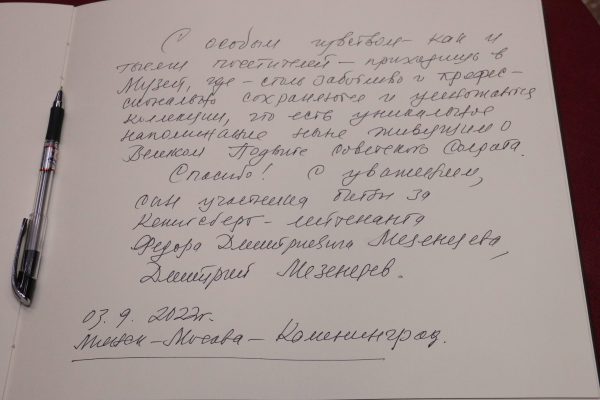 С особым чувством – как и
тысячи посетителей – приходишь в
Музей, где – столь заботливо и профес-
сионально сохраняются и умножаются
коллекции, что есть уникальное
напоминание ныне живущим о
Великом Подвиге Советского Солдата.
Спасибо! С уважением,
сын участника битвы за
Кенигсберг – лейтенанта
Федора Дмитриевича Мезенцева,
Дмитрий Мезенцев.
03.9.2022г.
Минск – Москва – Калининград.